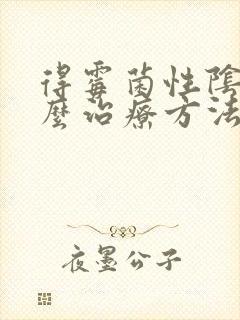 得霉菌性陰
麼治療方法
夜墨公子